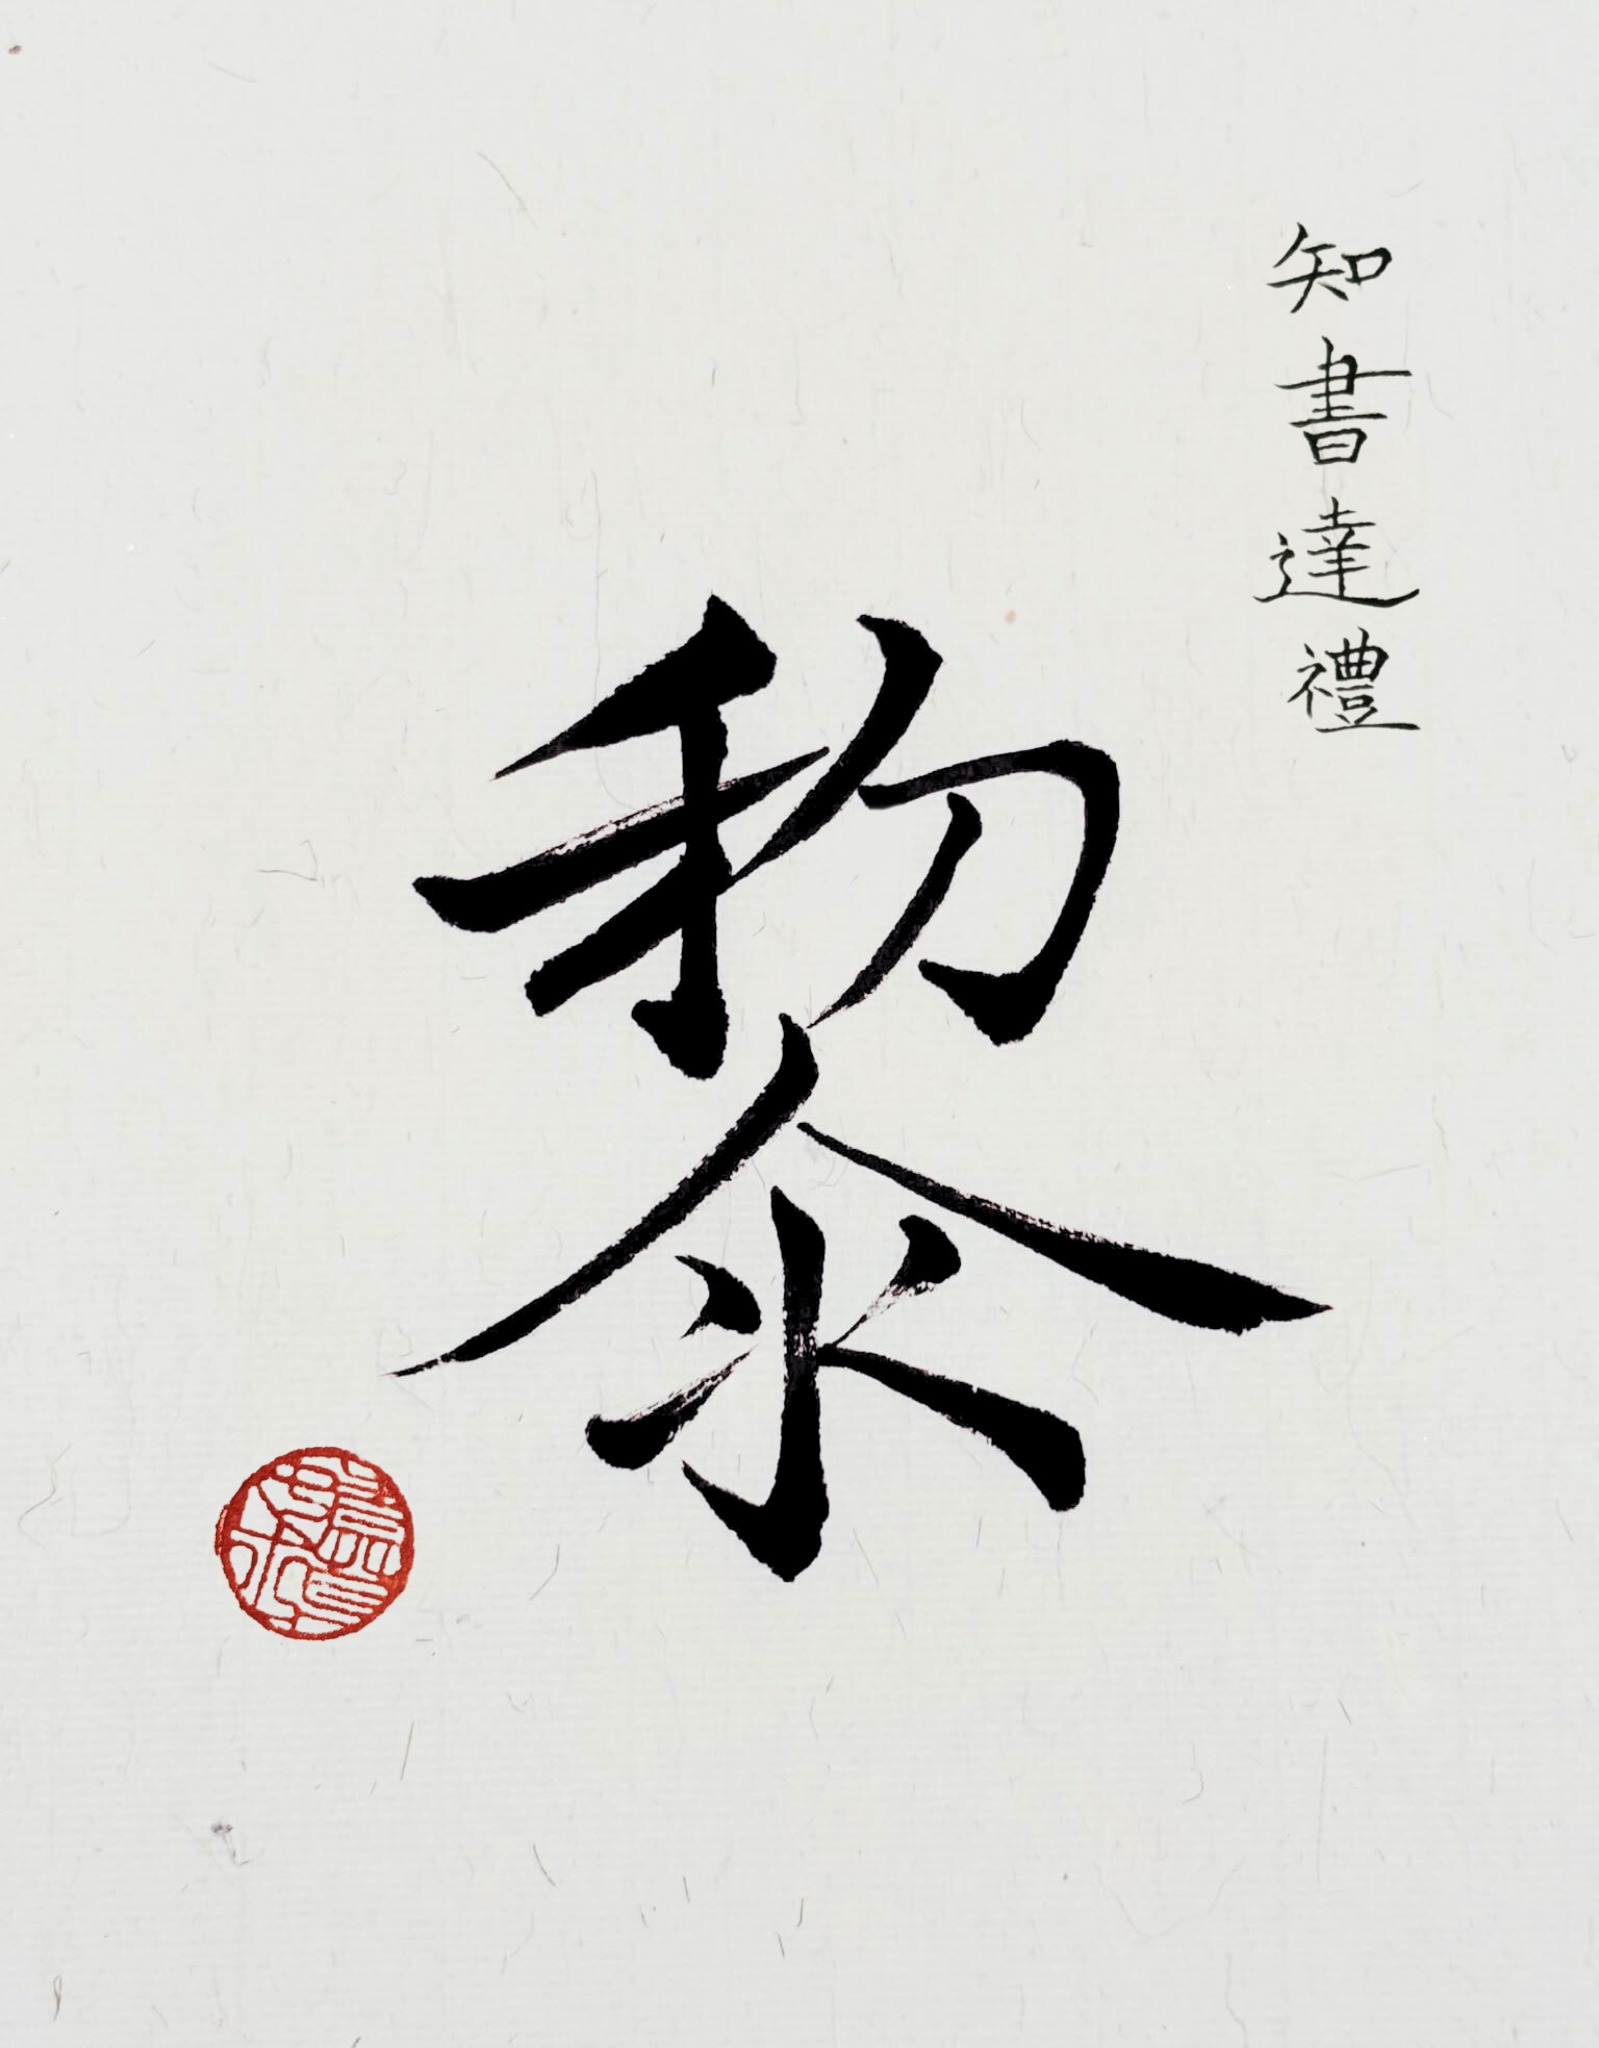 知書達禮
黎